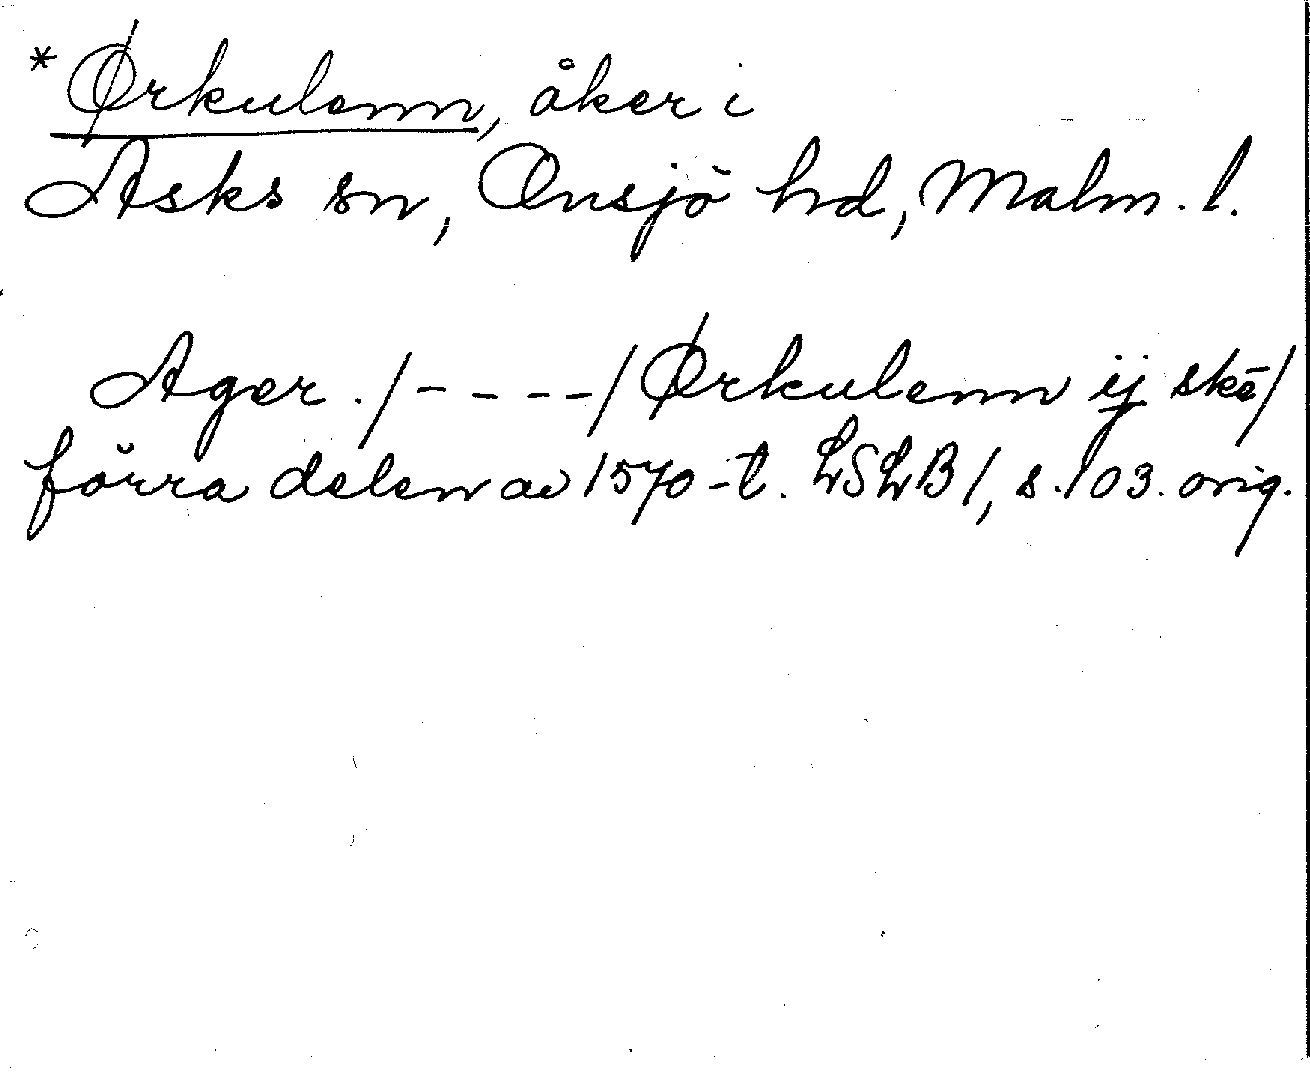 *Ørkulenn, åker i
Asks sn, Onsjö hd, Malm. l.
Ager. /- - - -/ Ørkulenn ij ske/
förra delen av 1570-t. LSLB 1, s. 103. orig.